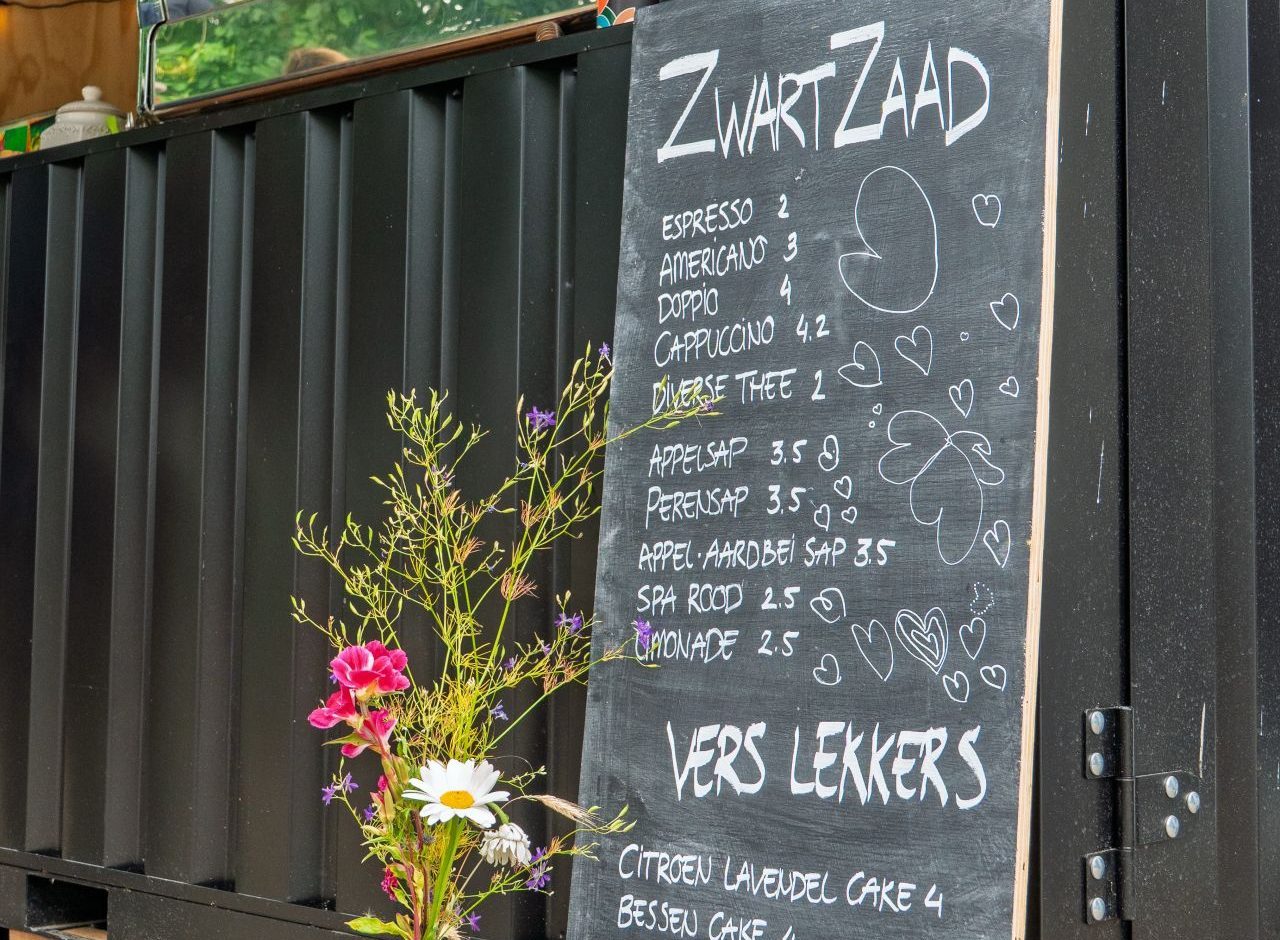 ZWART ZAAD
ESPRESSO 2
AMERICANO 3
DOPPIO 4
CAPPUCCINO 4.2
DIVERSE THEE 2
APPELSAP 3.5
PERENSAP 3.5
APPEL·AARDBEI SAP 3.5
SPA ROOD 2.5
LIMONADE 2.5
VERS LEKKERS
CITROEN LAVENDEL CAKE 4
BESSEN CAKE 4